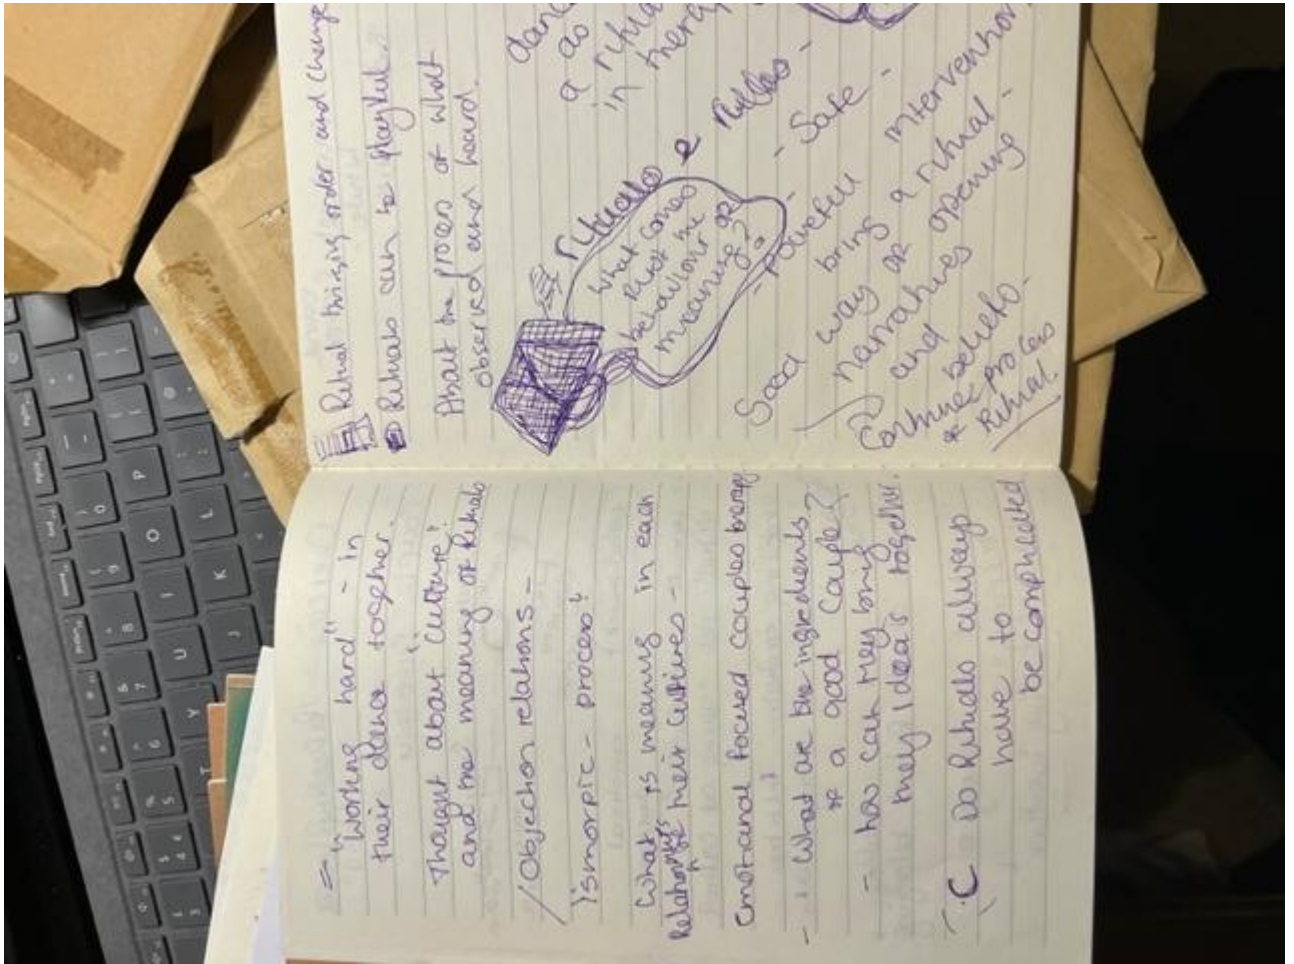 = "Working hard" - in
their dance together.
Thought about "culture"
and the meaning of Rituals
/Objection relations -
ismorpic - process!
What is meaning in each
Relationships their cultures -
Emotional focused couples therapy
- What are the ingredients
of a good couple?
- how can they bring
they ideas together.
C Do Rituals always
have to
be complicated
Ritual bringing order and change
Rituals can be playful.
About the proces of what
observed and heard.
as
a ritual
in therapy
rituals & rules -
What comes
First the
behaviour or
meaning?
- powerful - safe -
Good way bring a intervention
narratives of a ritual -
and opening
beliefs.
* process
Ritual.